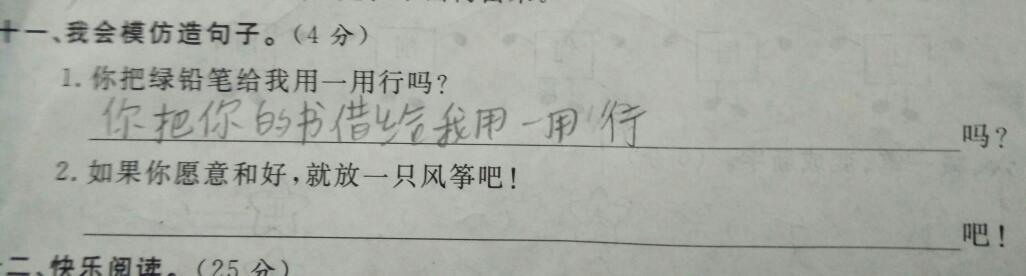 十一、我会模仿造句子。(4分)
1. 你把绿铅笔给我用一用行吗?
你把你的书借给我用一用行吗?
2. 如果你愿意和好,就放一只风筝吧!
吧!
二、快乐阅读。(25分)